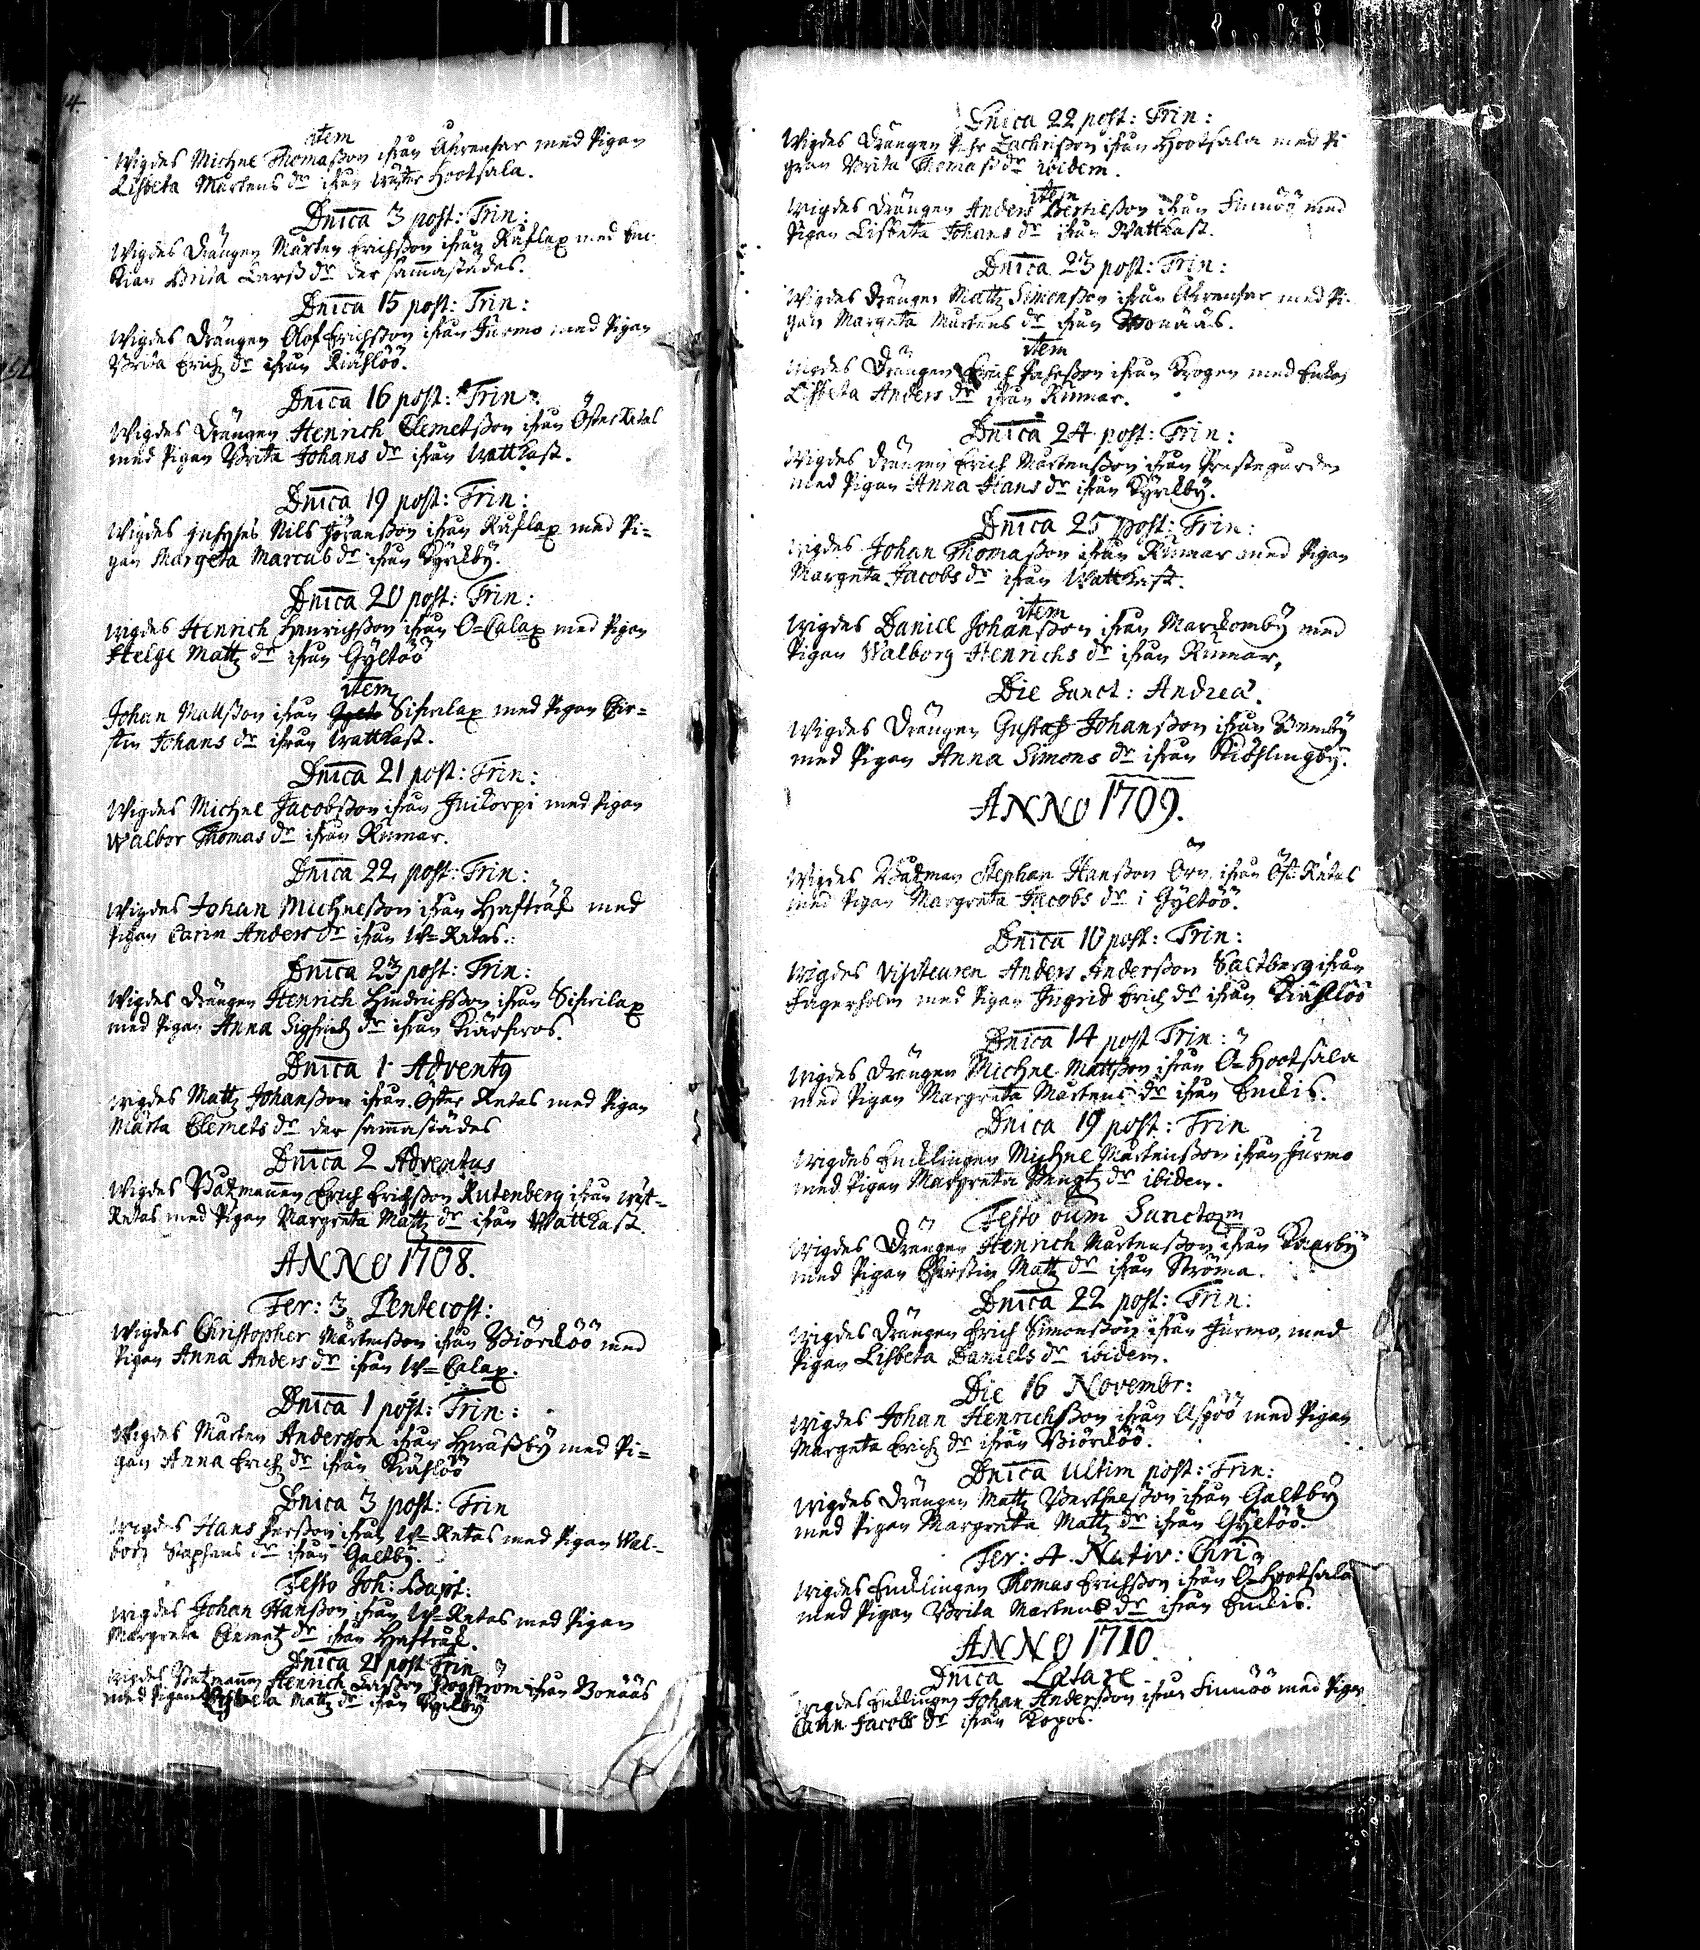 4.
item
Wigdes Michel Thomaßon ifrån Åhrensar med Pigan
Lisbeta Mårtens dr ifrån Wäster Hootsala.
Dnica 3 post: Trin:
Wigdes Drängen Mårten Erichßon ifrån Råflax med
Brita Larß dr der sammastädes.
Dnica 15 post: Trin:
Wigdes Drängen Olof Erichsson ifrån Jurmo med Pigan
Brita Erichz dr ifrån Kiählöö.
Dnica 16 post: Trin:
Wigdes Drängen Henrich Clemetßon ifrån Öster Retas
med Pigan Brita Johans dr ifrån Wattkast.
Dnica 19 post: Trin:
Wigdes Nils Jöranßon ifrån Råflax med Pi=
gan Margeta Marcus dr ifrån Kyrkby.
Dnica 20 post: Trin:
Wigdes Henrich Henrichßon ifrån O=Calax med Pigan
Helge Mattz dr ifrån Gyltöö
item
Johan Mattßon ifrån Sifwilax med Pigan Chir=
stin Johans dr ifrån Wattkast.
Dnica 21 post: Trin:
Wigdes Michel Jacobßon ifrån Juikorpi med Pigan
Walbor Thomas dr ifrån Rumar.
Dnica 22 post: Trin:
Wigdes Johan Michelßon ifrån Hafträsk med
Pigan Carin Anders dr ifrån W=Retas.
Dnica 23 post: Trin:
Wigdes Drängen Henrich Hindrichßon ifrån Sifwilax
med Pigan Anna Sigfridz dr ifrån Kiärfwos.
Dnica 1 Adventg
Wigdes Mattz Johanßon ifrån Öster Retas med Pigan
Märta Clemets dr der sammastädes
Dnica 2 Adventus
Wigdes Båtzmannen Erich Erichßon Rutenberg ifrån Wäst=
Retas med Pigan Margreta Mattz dr ifrån Wattkast.
ANNO 1708.
Fer: 3 Pentecost:
Wigdes Christopher Mårtenßon ifrån Biörcköö med
Pigan Anna Anders dr ifrån W=Calax.
Dnica 1 post: Trin:
Wigdes Mårten Anderßon ifrån Hwäßby med Pi=
gan Anna Erichz dr ifrån Kiählöö
Dnica 3 post: Trin
Wigdes Hans Perßon ifrån W=Retas med Pigan Wal=
borg Staphens dr ifrån Galtby.
Festo Joh: Bapt:
Wigdes Johan Hanßon ifrån W=Retas med Pigan
Margreta Clemetz dr ifrån Hafträsk.
Dnica 21 post Trin
Wigdes Båtzmann Henrich Larßon ifrån Bonääs
med Pigan Lisbeta Mattz dr ifrån Kyrkby
Dnica 22 post: Trin:
Wigdes Drängen Pehr Zachrißon ifrån Hootsala med Pi
gan Brita Thomas dr ibidem.
item
Wigdes Drängen Anders Bertilßon ifrån Finnöö med
Pigan Lisbeta Johans dr ifrån Wattkast.
Dnica 23 post: Trin:
Wigdes Drängen Mattz Simonßon ifrån Åhrensar med Pi-
gan Margeta Mårtens dr ifrån Bonääs.
item
Wigdes Drängen Erich ifrån Krogen med Enkan
Lisbeta Anders dr ifrån Rumar.
Dnica 24 post: Trin:
Wigdes Drängen Erich Mårtenßon ifrån Prästegården
med Pigan Anna Hans dr ifrån Kyrkby.
Dnica 25 post: Trin:
Wigdes Johan Thomaßon ifrån Rumar med Pigan
Margeta Jacobs dr ifrån Wattkast.
item
Wigdes Daniel Johanßon ifrån Marckomby med
Pigan Walborg Henrichs dr ifrån Rumar,
Die Sanct: Andreæ.
Wigdes Drängen Gustaf Johanßon ifrån Benneby
med Pigan Anna Simons dr ifrån Kiöhlingby.
ANNO 1709.
Wigdes Båtzman Stephan Hanßon Örn ifrån Öst: Retas
med Pigan Margreta Jacobs dr i Gyltöö.
Dnica 10 post: Trin:
Wigdes Visiteuren Anders Anderßon Saltberg ifrån
Fagerholm med Pigan Ingrid Erichz dr ifrån Kiählöö
Dnica 14 post Trin:
Wigdes Drängen Michel Mattßon ifrån O=Hootsala
med Pigan Margreta Mårtens dr ifrån Enklis.
Dnica 19 post: Trin
Wigdes Encklingen Michel Mårtenßon ifrån Jurmo
med Pigan Margreta Bengtz dr ibidem.
Festo oum Sanctom
Wigdes Drängen Henrich Mårtenßon ifrån
med Pigan Chirstin Mattz dr ifrån Ströma.
Dnica 22 post: Trin:
Wigdes Drängen Erich Simonßon ifrån Jurmo, med
Pigan Lisbeta Daniels dr ibidem.
Die 16 Novembr:
Wigdes Johan Henrichßon ifrån Aspöö med Pigan
Margeta Erichz dr ifrån Biörcköö.
Dnica ultim post: Trin:
Wigdes Drängen Mattz Berthelßon ifrån Galtby
med Pigan Margreta Mattz dr ifrån Gyltöö.
Fer: 4 Nativ: Chri
Wigdes Encklingen Thomas Erichßon ifrån O=Hootsala
med Pigan Brita Mårtens dr ifrån Enklis.
ANNO 1710.
Dnica Lætare
Wigdes Encklingen Johan Anderßon ifrån Finnöö med Pigan
Carin Jacobs dr ifrån Kopos.